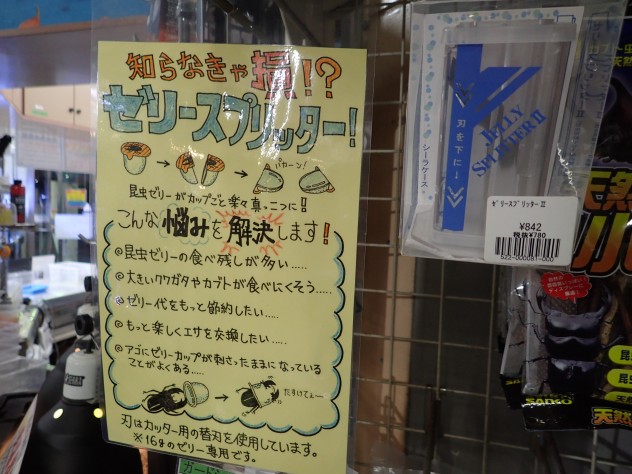 知らなきゃ損!?
ゼリースプリッター!
パカーン!
昆虫ゼリーがカップごと楽々真っ二つに!!
こんな悩みを解決します!
@昆虫ゼリーの食べ残しが多い.....
@大きいクワガタやカブトが食べにくそう.....
@ゼリー代をもっと節約したい.....
@もっと楽しくエサを交換したい.....
@アゴにゼリーカップが刺さったままになっている
ことがよくある.....
たすけてぇー
刃はカッター用の替刃を使用しています。
※16gのゼリー専用です。
刃を下に↓
JELLY
SPLITTER II
シーラケース
ゼリースプリッターⅡ
¥842
税抜¥780
522-000081-000
SANKO
天然